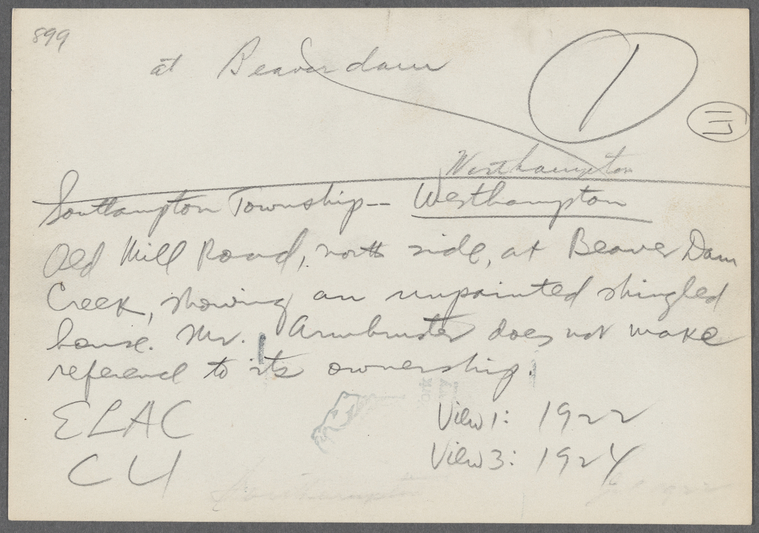 899
at Beaver dam
1
III
Westhampton
Southampton Township-- Westhampton
Old Mill Road, north side, at Beaver Dam
Creek, showing an unpainted shingled
house. Mr. Armbruster does not make
reference to its ownership.
ELAC
CU
View 1: 1922
View 3: 1924
Southampton